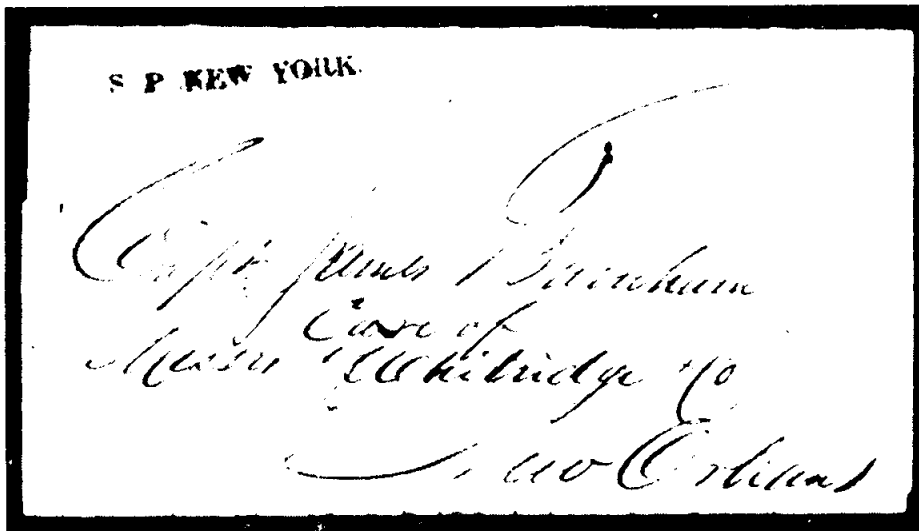 S P NEW YORK.
Capt James Barnham
Care of
Messrs Whitridge & Co
New Orleans